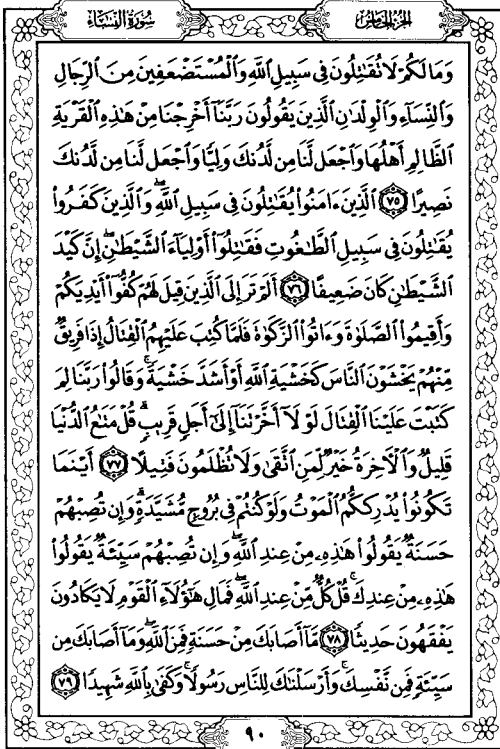 سُورَةُ النِّسَاءِ
الجُزْءُ الخَامِسُ
وَمَا لَكُمْ لَا تُقَٰتِلُونَ فِى سَبِيلِ ٱللَّهِ وَٱلْمُسْتَضْعَفِينَ مِنَ ٱلرِّجَالِ
وَٱلنِّسَآءِ وَٱلْوِلْدَٰنِ ٱلَّذِينَ يَقُولُونَ رَبَّنَآ أَخْرِجْنَا مِنْ هَٰذِهِ ٱلْقَرْيَةِ
ٱلظَّالِمِ أَهْلُهَا وَٱجْعَل لَّنَا مِن لَّدُنكَ وَلِيًّا وَٱجْعَل لَّنَا مِن لَّدُنكَ
نَصِيرًا ٧٥ ٱلَّذِينَ ءَامَنُوا۟ يُقَٰتِلُونَ فِى سَبِيلِ ٱللَّهِۖ وَٱلَّذِينَ كَفَرُوا۟
يُقَٰتِلُونَ فِى سَبِيلِ ٱلطَّٰغُوتِ فَقَٰتِلُوٓا۟ أَوْلِيَآءَ ٱلشَّيْطَٰنِۖ إِنَّ كَيْدَ
ٱلشَّيْطَٰنِ كَانَ ضَعِيفًا ٧٦ أَلَمْ تَرَ إِلَى ٱلَّذِينَ قِيلَ لَهُمْ كُفُّوٓا۟ أَيْدِيَكُمْ
وَأَقِيمُوا۟ ٱلصَّلَوٰةَ وَءَاتُوا۟ ٱلزَّكَوٰةَ فَلَمَّا كُتِبَ عَلَيْهِمُ ٱلْقِتَالُ إِذَا فَرِيقٌ
مِّنْهُمْ يَخْشَوْنَ ٱلنَّاسَ كَخَشْيَةِ ٱللَّهِ أَوْ أَشَدَّ خَشْيَةًۚ وَقَالُوا۟ رَبَّنَا لِمَ
كَتَبْتَ عَلَيْنَا ٱلْقِتَالَ لَوْلَآ أَخَّرْتَنَآ إِلَىٰٓ أَجَلٍ قَرِيبٍۗ قُلْ مَتَٰعُ ٱلدُّنْيَا
قَلِيلٌ وَٱلْءَاخِرَةُ خَيْرٌ لِّمَنِ ٱتَّقَىٰ وَلَا تُظْلَمُونَ فَتِيلًا ٧٧ أَيْنَمَا
تَكُونُوا۟ يُدْرِككُّمُ ٱلْمَوْتُ وَلَوْ كُنتُمْ فِى بُرُوجٍ مُّشَيَّدَةٍۗ وَإِن تُصِبْهُمْ
حَسَنَةٌ يَقُولُوا۟ هَٰذِهِۦ مِنْ عِندِ ٱللَّهِۖ وَإِن تُصِبْهُمْ سَيِّئَةٌ يَقُولُوا۟
هَٰذِهِۦ مِنْ عِندِكَۚ قُلْ كُلٌّ مِّنْ عِندِ ٱللَّهِۖ فَمَالِ هَٰٓؤُلَآءِ ٱلْقَوْمِ لَا يَكَادُونَ
يَفْقَهُونَ حَدِيثًا ٧٨ مَّآ أَصَابَكَ مِنْ حَسَنَةٍ فَمِنَ ٱللَّهِۖ وَمَآ أَصَابَكَ مِن
سَيِّئَةٍ فَمِن نَّفْسِكَۚ وَأَرْسَلْنَٰكَ لِلنَّاسِ رَسُولًاۚ وَكَفَىٰ بِٱللَّهِ شَهِيدًا ٧٩
٩٠